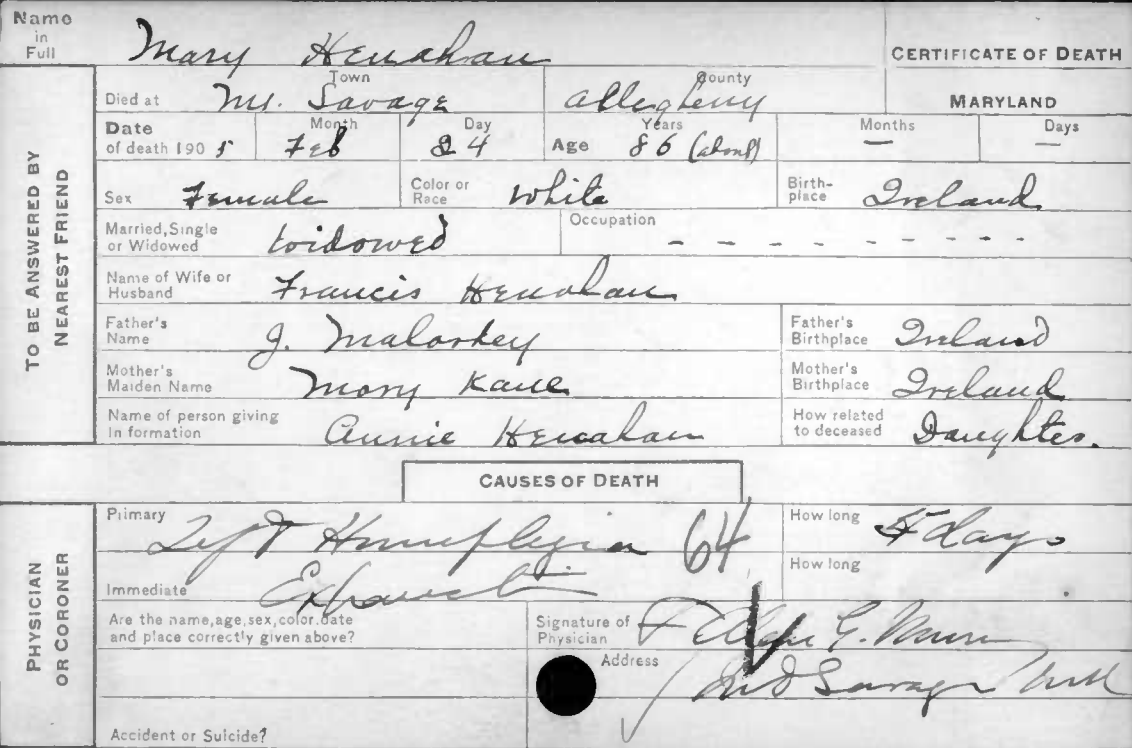 Name in Full Mary Henahan
CERTIFICATE OF DEATH
Died at Town Mt. Savage County Allegheny
MARYLAND
Date of death 1905 Month Feb Day 24 Age Years 86 (about) Months — Days —
Sex Female Color or Race White Birthplace Ireland
Married, Single or Widowed Widowed Occupation - - - - - - - - -
Name of Wife or Husband Francis Henahan
Father's Name J. Maloskey Father's Birthplace Ireland
Mother's Maiden Name Mary Kane Mother's Birthplace Ireland
Name of person giving In formation Annie Henahan How related to deceased Daughter.
TO BE ANSWERED BY NEAREST FRIEND
CAUSES OF DEATH
Primary Left Hemiplegia 64 How long days
Immediate Exhaustion How long
Are the name, age, sex, color. date and place correctly given above?
Signature of Physician G.
Address Mt Savage Md
Accident or Suicide?
PHYSICIAN OR CORONER